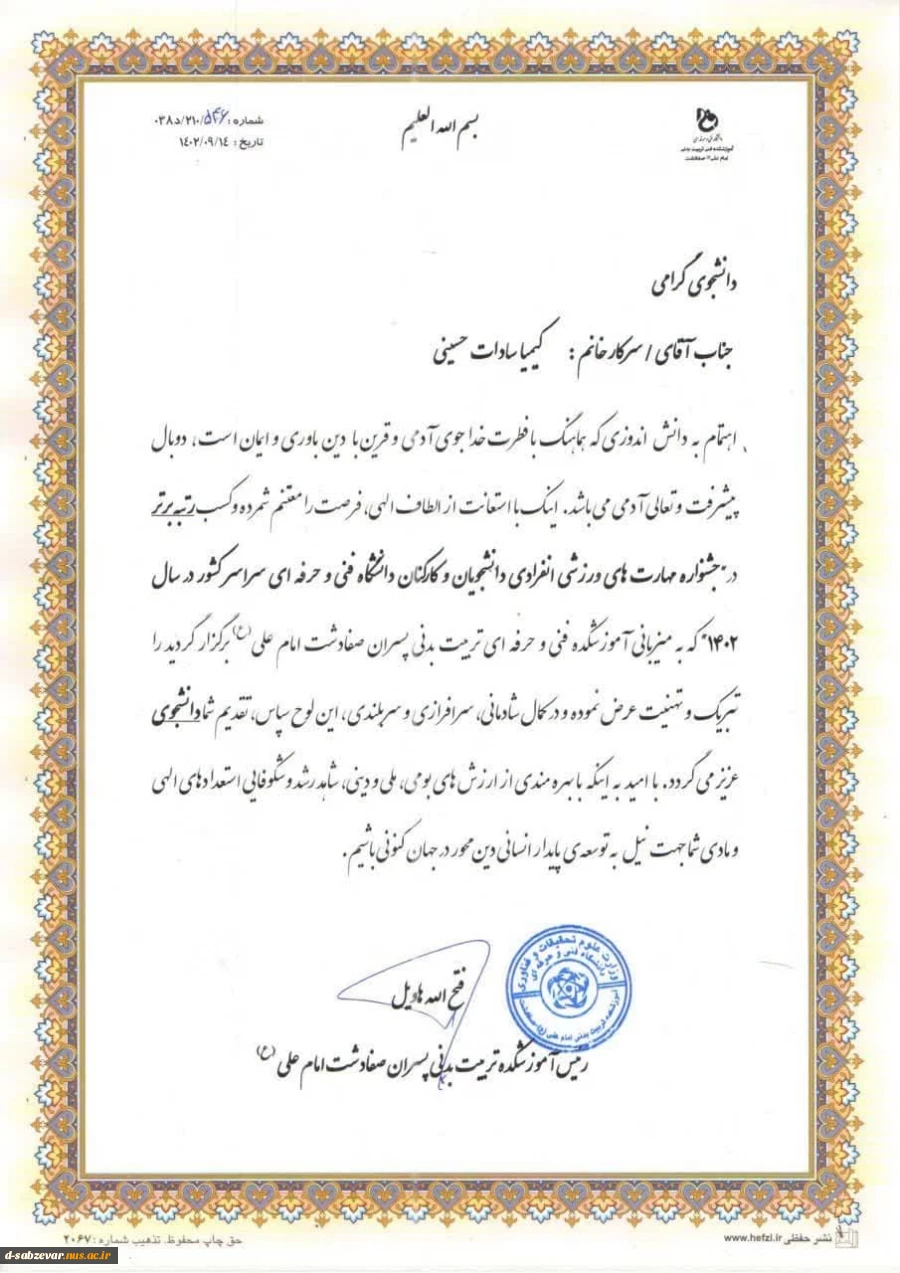 بسم الله العلیم
شماره: ۰۳۸د/۲۱۰/۵۴۶
تاریخ: ۱۴۰۲/۰۹/۱۴
آموزشکده فنی تربیت بدنی
دانشجوی گرامی
جناب آقای / سرکار خانم : کیمیا سادات حسینی
اهتمام به دانش اندوزی که هماهنگ با فطرت خداجوی آدمی و قرین با دین باوری و ایمان است، دو بال
پیشرفت و تعالی آدمی می باشد. اینک با استعانت از الطاف الهی، فرصت را مغتنم شمرده و کسب رتبه برتر
در "جشنواره مهارت های ورزشی انفرادی دانشجویان و کارکنان دانشگاه فنی و حرفه ای سراسر کشور در سال
۱۴۰۲" که به میزبانی آموزشکده فنی و حرفه ای تربیت بدنی پسران صفادشت امام علی (ع) برگزار گردید را
تبریک و تهنیت عرض نموده و در کمال شادمانی، سرافرازی و سربلندی، این لوح سپاس، تقدیم شما دانشجوی
عزیز می گردد. با امید به اینکه با بهره مندی از ارزش های بومی، ملی و دینی، شاهد رشد و شکوفایی استعدادهای الهی
و مادی شما جهت نیل به توسعه ی پایدار انسانی دین محور در جهان کنونی باشیم.
وزارت علوم تحقیقات و فناوری
دانشگاه فنی و حرفه ای
فتح الله هاویل
رئیس آموزشکده تربیت بدنی پسران صفادشت امام علی (ع)
نشر حفظی www.hefzi.ir
حق چاپ محفوظ. تذهیب شماره: ۲۰۶۷
d-sabzevar.nus.ac.ir